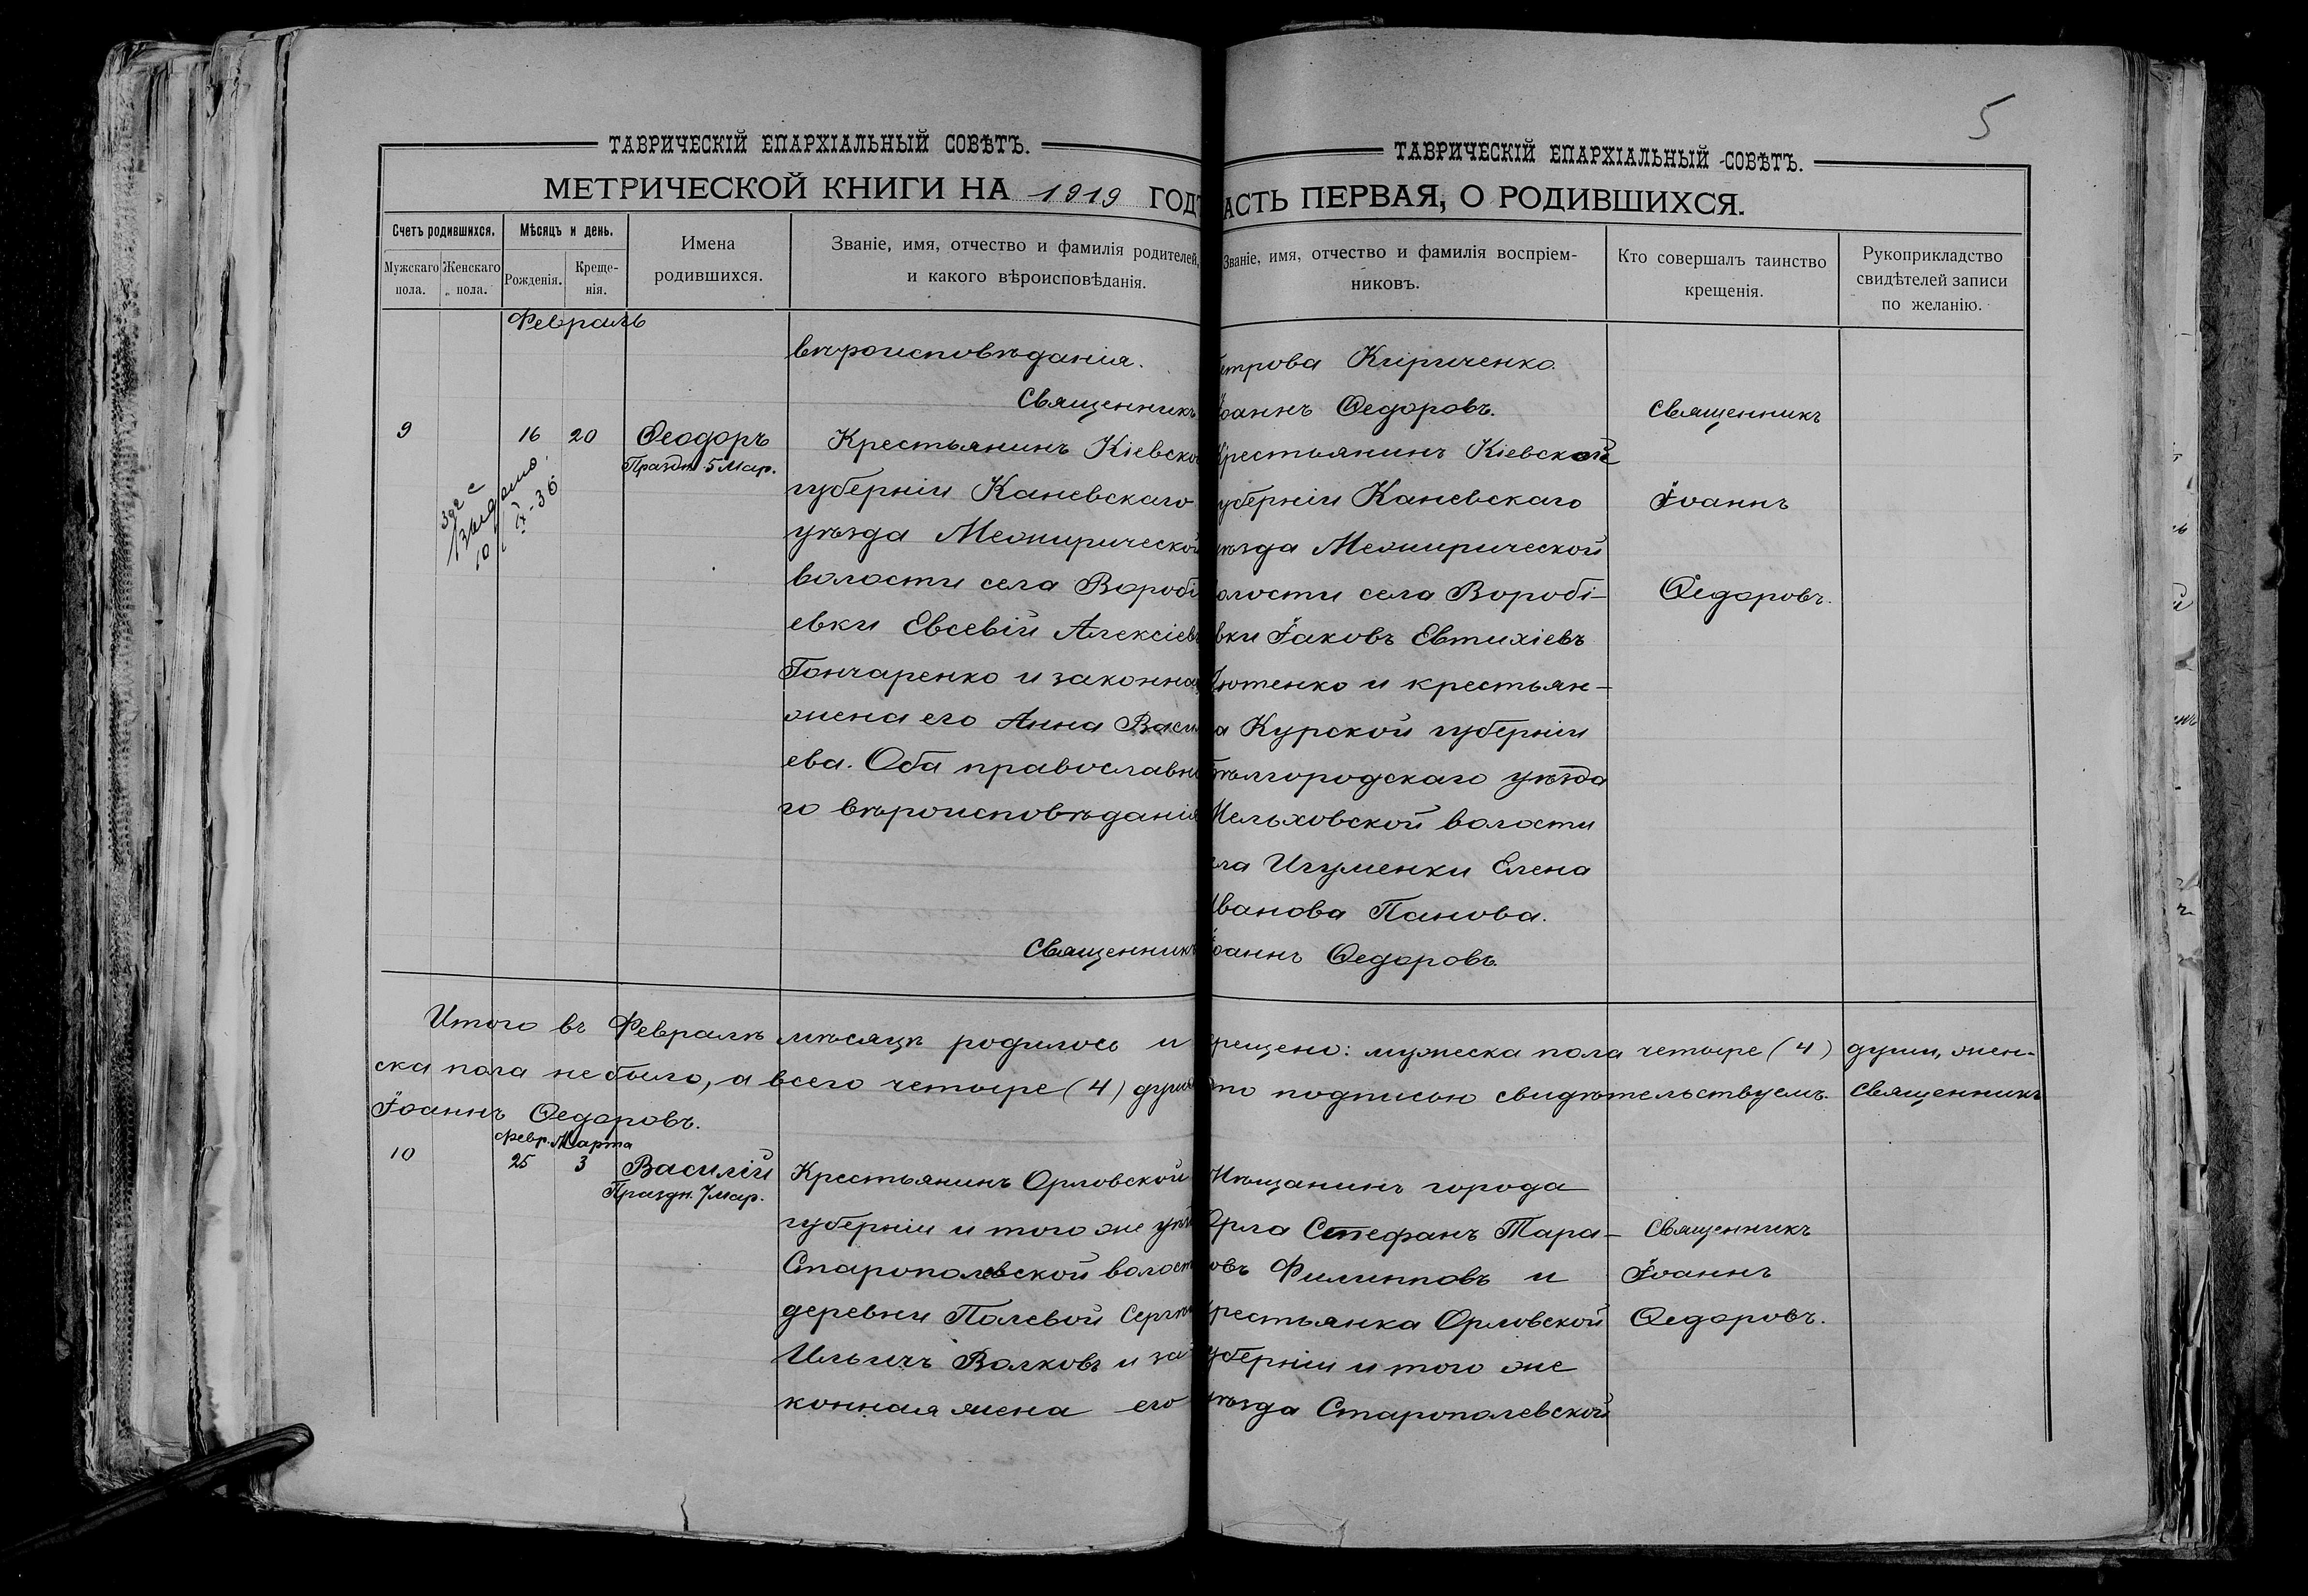 5
ТАВРИЧЕСКІЙ ЕПАРХІАЛЬНЫЙ СОВѢТЪ.
МЕТРИЧЕСКОЙ КНИГИ НА 1919 ГОДЪ
Счетъ родившихся.
Мужскаго пола.
Женскаго пола.
Мѣсяцъ и день.
Рожденія.
Креще-
нія.
Имена
родившихся.
Званіе, имя, отчество и фамилія родителей,
и какого вѣроисповѣданія.
ТАВРИЧЕСКІЙ ЕПАРХІАЛЬНЫЙ СОВѢТЪ.
АСТЬ ПЕРВАЯ, О РОДИВШИХСЯ.
Званіе, имя, отчество и фамилія воспріем-
никовъ.
Кто совершалъ таинство
крещенія.
Рукоприкладство
свидѣтелей записи
по желанію.
Февраль
вѣроисповѣданія.
Священникъ
9 16 20 Ѳеодоръ
Праздн. 5 Мар.
Выдано
Крестьянинъ Кіевской
губерніи Каневскаго
уѣзда Межирической
волости села Воробі
евки Евсевій Алексіевъ
Гончаренко и законная
жена его Анна Васи
ева. Оба православна
го вѣроисповѣданія
Священникъ
етрова Кириченко.
Іоаннъ Ѳедоровъ.
Крестьянинъ Кіевской
губерніи Каневскаго
уѣзда Межирической
волости села Воробі-
вки Іаковъ Евтихіевъ
ютенко и крестьян-
а Курской губерніи
Бѣлгородскаго уѣзда
Мельховской волости
ела Игуменки Елена
Иванова Панова.
Іоаннъ Ѳедоровъ.
Священникъ
Іоаннъ
Ѳедоровъ.
Итого въ Февралѣ мѣсяцѣ родилось и крещено: мужеска пола четыре (4) души, жен-
ска пола не было, а всего четыре (4) души что подписью свидѣтельствуемъ. Священникъ
Іоаннъ Ѳедоровъ.
Февр. Марта
10 25 3 Василій
Праздн. 7 мар.
Крестьянинъ Орловской
губерніи и того же уѣз
Старополевской волост
деревни Полевой Сергѣй
Ильичъ Волковъ и за
конная жена его
Мѣщанинъ города
Орла Стефанъ Тара-
овъ Филипповъ и
крестьянка Орловской
губерніи и того же
уѣзда Старополевской
Священникъ
Іоаннъ
Ѳедоровъ.